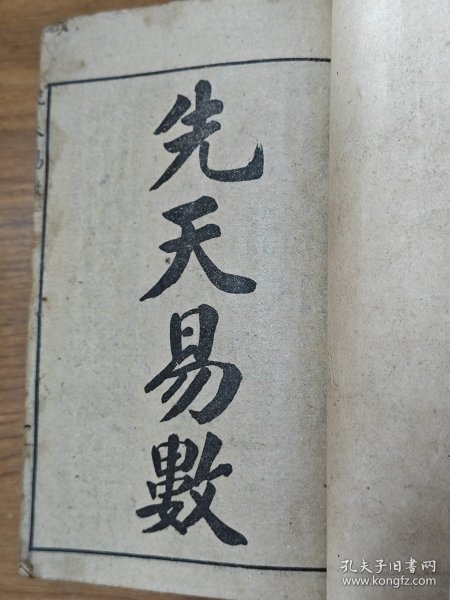 先天易數
孔夫子旧书网
www.kongfz.com